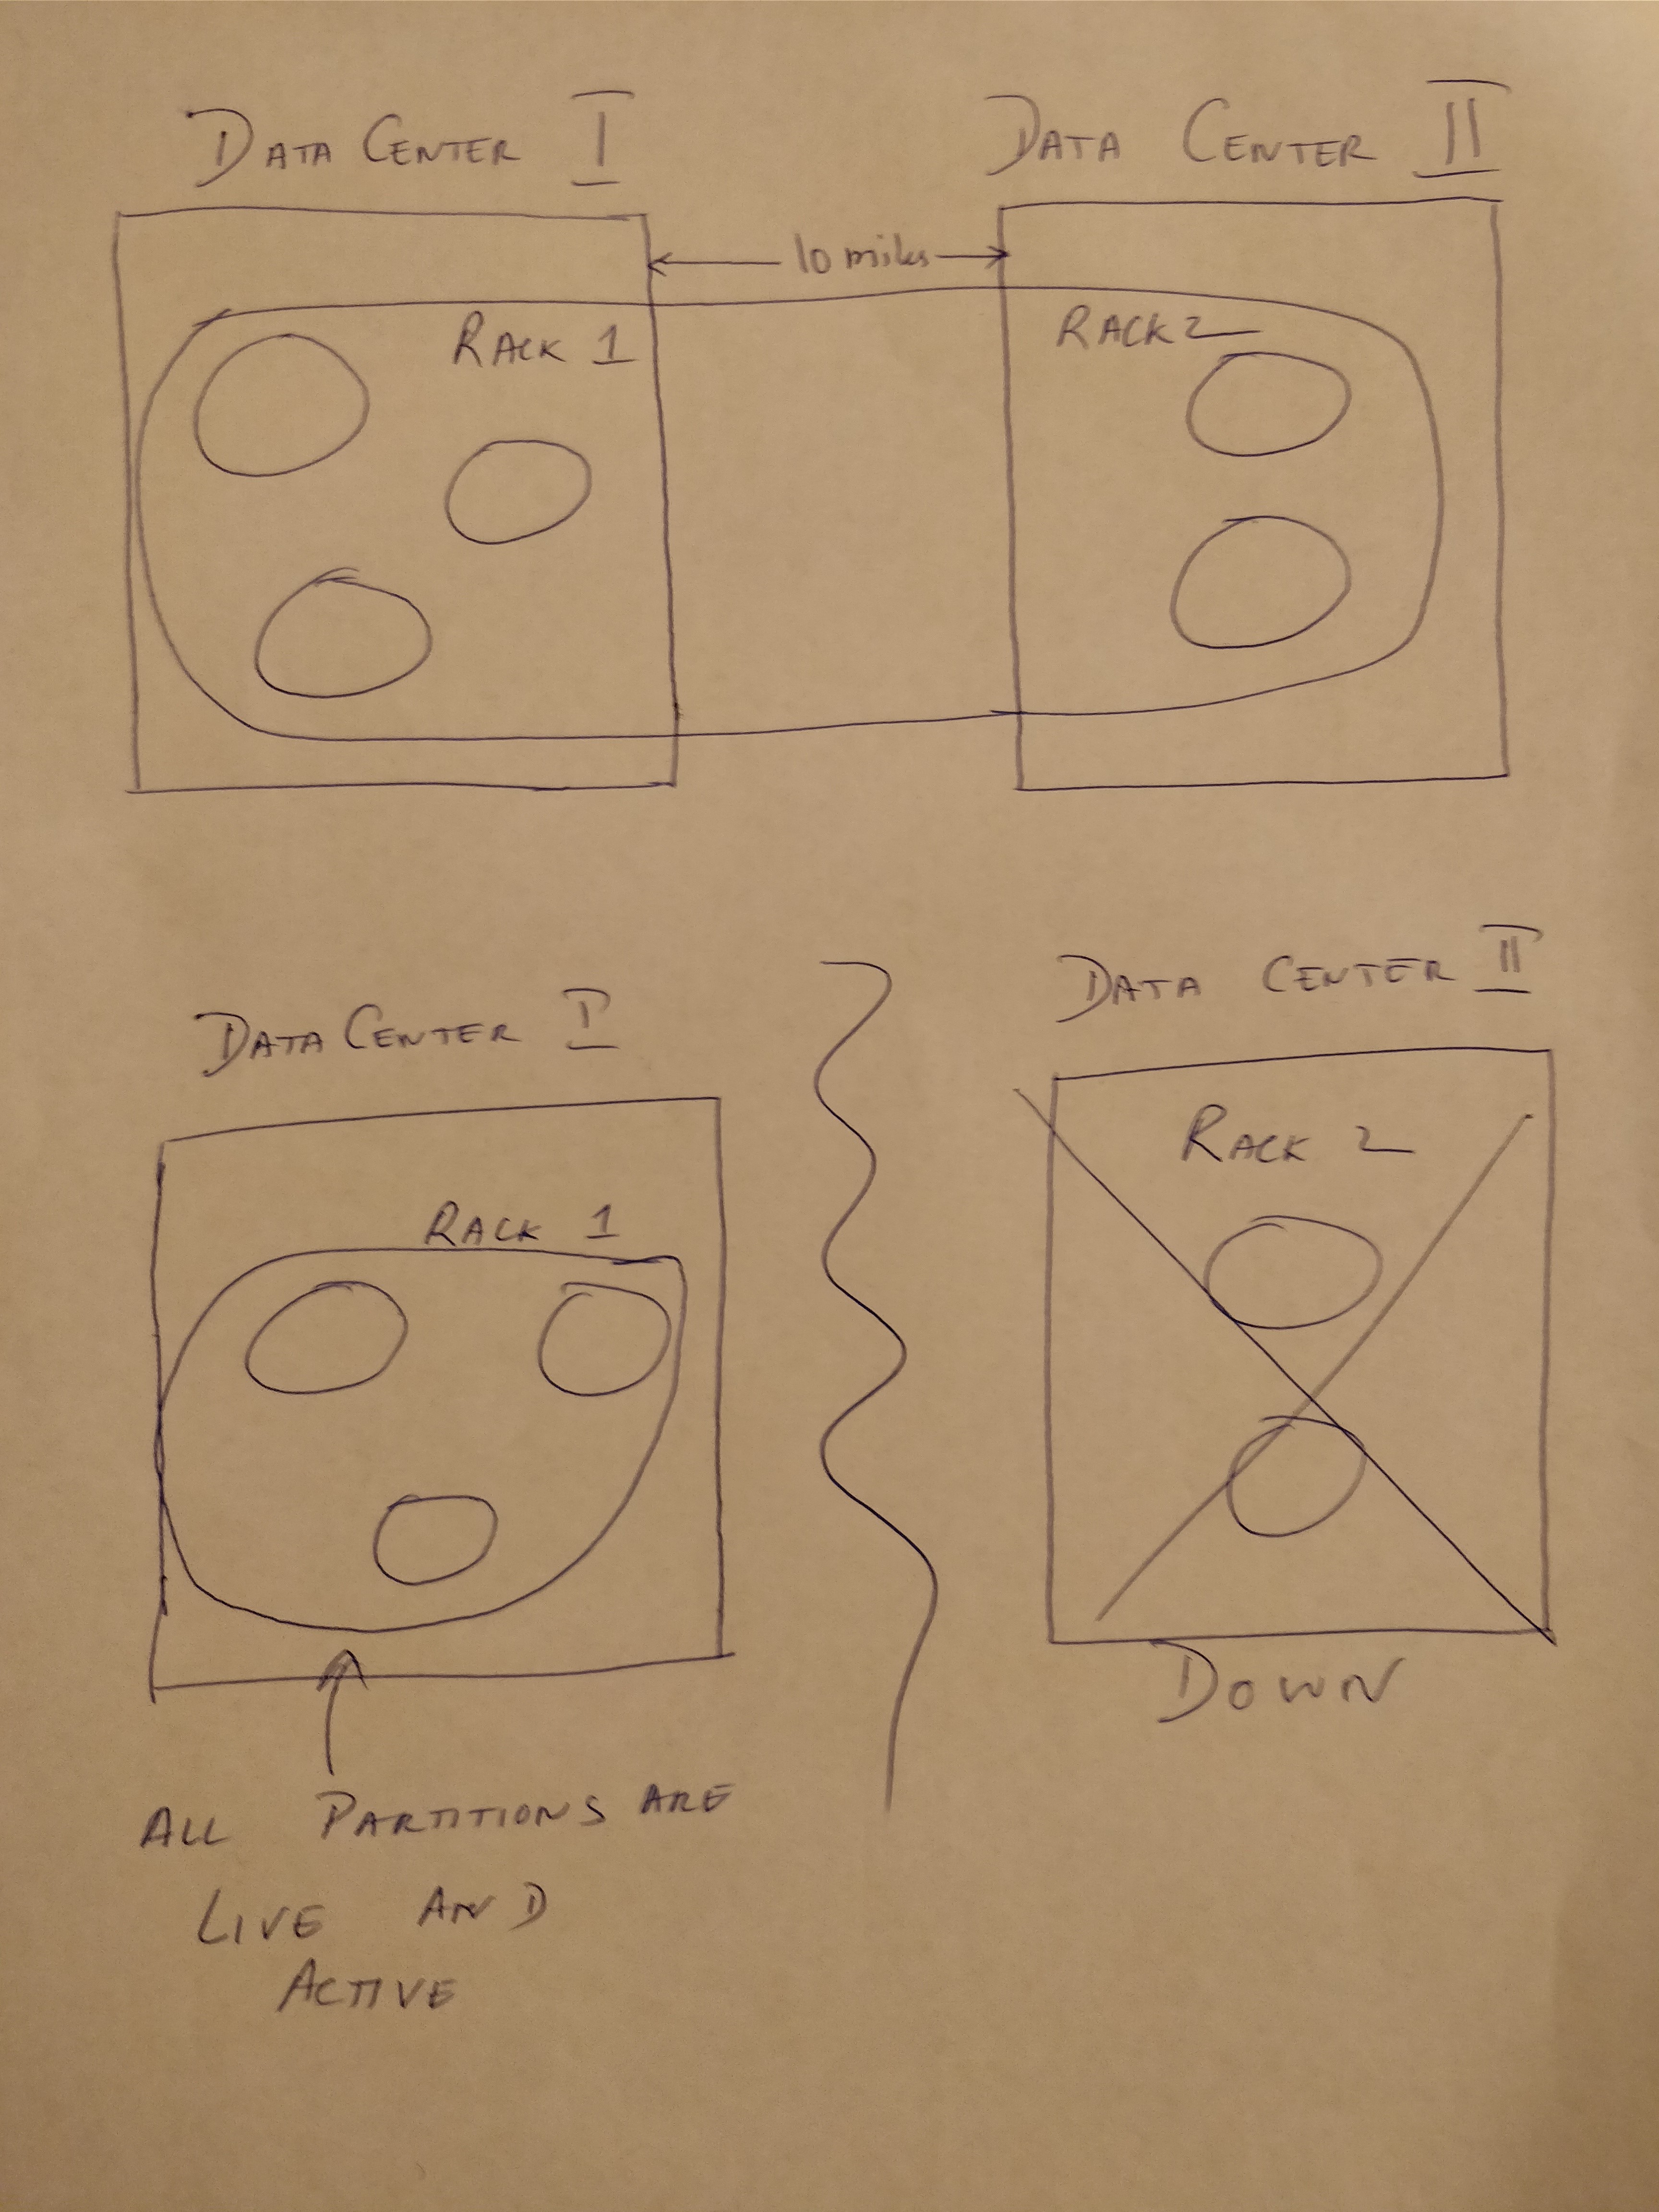 DATA CENTER I
DATA CENTER II
10 miles
RACK 1
RACK 2
DATA CENTER I
DATA CENTER II
RACK 1
RACK 2
DOWN
ALL PARTITIONS ARE
LIVE AND
ACTIVE